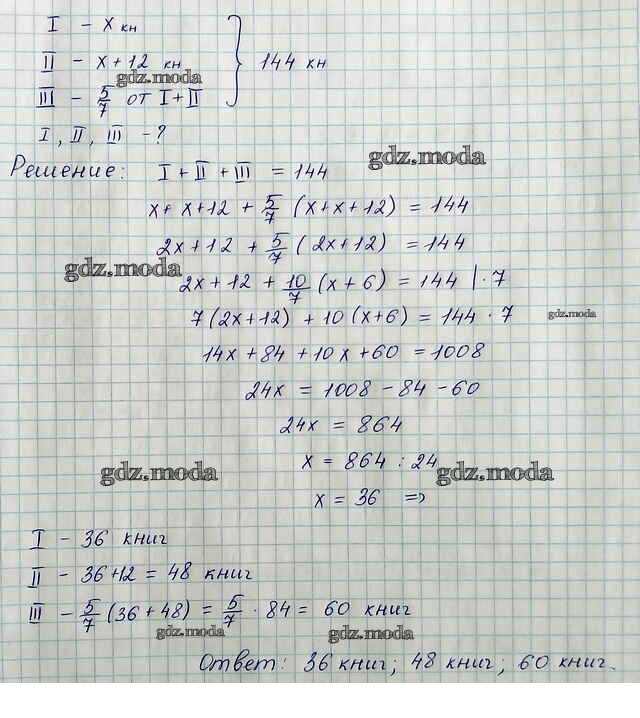 I - x кн
II - x + 12 кн } 144 кн
gdz.moda
III - 5/7 от I + II
I, II, III - ?
gdz.moda
Решение: I + II + III = 144
x + x + 12 + 5/7 (x + x + 12) = 144
2x + 12 + 5/7 (2x + 12) = 144
gdz.moda
2x + 12 + 10/7 (x + 6) = 144 | · 7
7 (2x + 12) + 10 (x + 6) = 144 · 7
gdz.moda
14x + 84 + 10x + 60 = 1008
24x = 1008 - 84 - 60
24x = 864
x = 864 : 24
gdz.moda gdz.moda
x = 36 =>
I - 36 книг
II - 36 + 12 = 48 книг
III - 5/7 (36 + 48) = 5/7 · 84 = 60 книг
gdz.moda gdz.moda
Ответ: 36 книг; 48 книг; 60 книг.